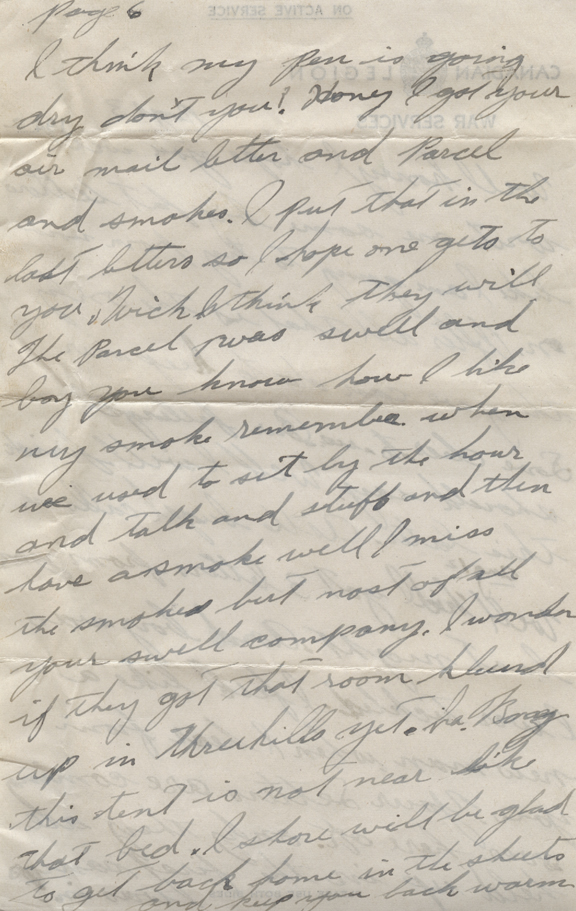 Page 6
ON ACTIVE SERVICE
CANADIAN LEGION
WAR SERVICES
I think my pen is going
dry don't you! Honey I got your
air mail letter and Parcel
and smokes. I put that in the
last letters so I hope one gets to
you. Wich I think they will
The Parcel was swell and
boy you know how I like
my smoke remember when
we used to sit by the hour
and talk and stuff and then
have a smoke well I miss
the smokes but most of all
your swell company. I wonder
if they got that room
up in threehills yet. ha. Boy
this tent is not near like
that bed. I shore will be glad
to get back home in the sheets
and keep you back warm